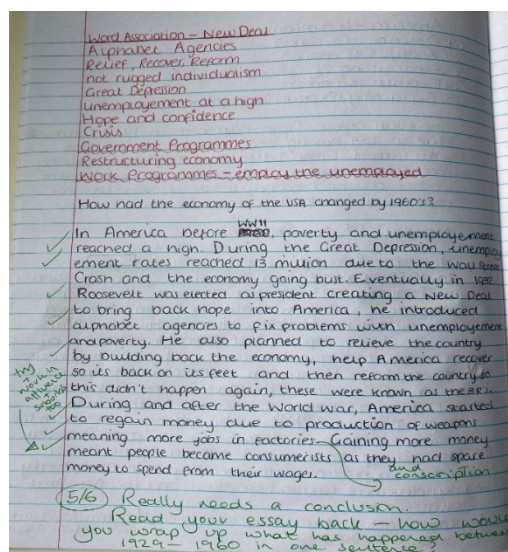 Word Association - New Deal
Alphabet Agencies
Relief, Recover, Reform
not rugged individualism
Great Depression
unemployement at a high
Hope and confidence
Crisis
Government Programmes
Restructuring economy
Work Programmes - employ the unemployed
How had the economy of the USA changed by 1960's?
WWII
In America before poverty and unemployement
reached a high. During the Great Depression, unemploy
ement rates reached 13 million due to the Wall Street
Crash and the economy going bust. Eventually in 1932
Roosevelt was elected as president creating a New Deal
to bring back hope into America, he introduced
alphabet agencies to fix problems with unemployement
and poverty. He also planned to relieve the country
by building back the economy, help America recover
so its back on its feet and then reform the country so
this didn't happen again, these were known as the 3R's.
During and after the World War, America started
to regain money due to production of weapons
meaning more jobs in factories. Gaining more money
meant people became consumerists as they had spare
money to spend from their wages.
and
conscription
try
to
work in
affluence
+
suburbs
too
5/6 Really needs a conclusion.
Read your essay back - how would
you wrap up what has happened between
1929 - 1960 in one sentence